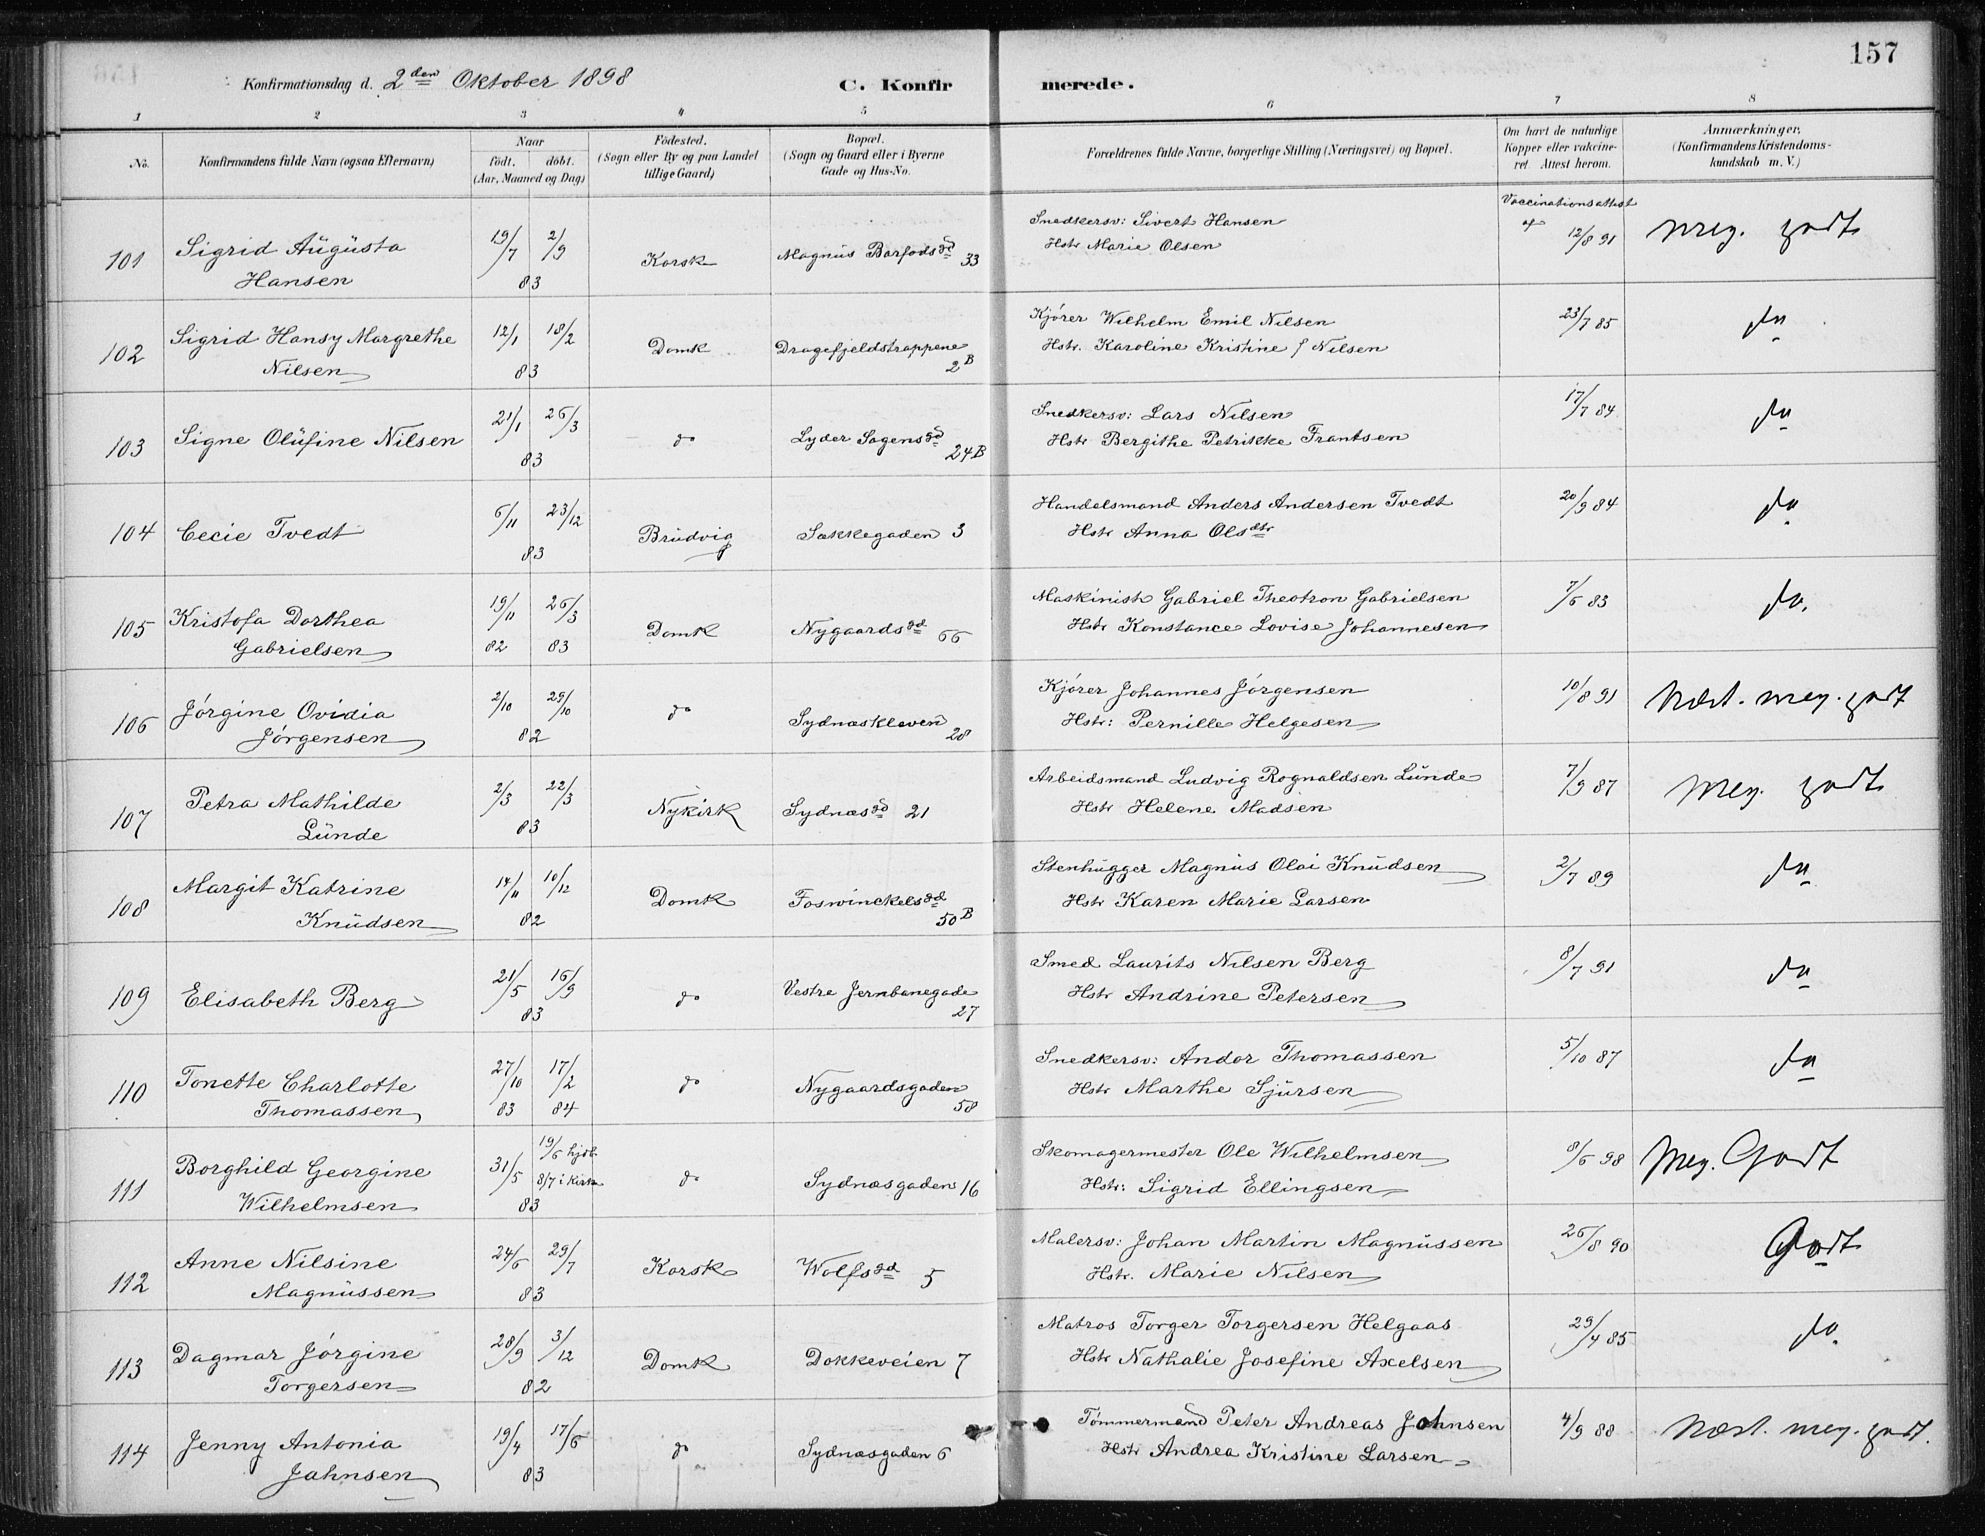 157
Konfirmationsdag d. 2den Oktober 1898
C. Konfirmerede.
1 2 3 4 5 6 7 8
No. Konfirmandens fulde Navn (ogsaa Efternavn) Naar født. døbt. (Aar, Maaned og Dag) Fødested. (Sogn eller By og paa Landet tillige Gaard) Bopæl. (Sogn og Gaard eller i Byerne Gade og Hus-No. Forældrenes fulde Navne, borgerlige Stilling (Næringsvei) og Bopæl. Om havt de naturlige Kopper eller vakcineret. Attest herom. Anmærkninger, (Konfirmandens Kristendomskundskab m. V.)
101 Sigrid Augusta Hansen 19/7 2/9 83 Korsk Magnus Barfodsgd 33 Snedkersv: Sivert Hansen Hstr Marie Olsen Vaccinationsattest af 12/8 91 meg. godt
102 Sigrid Hansy Margrethe Nilsen 12/1 18/2 83 Domk Dragefjeldstrappene 2B Kjører Wilhelm Emil Nilsen Hstr. Karoline Kristine f Nilsen 23/7 85 do
103 Signe Olufine Nilsen 21/1 26/3 83 do Lyder Sagensgd 24B Snedkersv: Lars Nilsen Hstr Bergithe Petrikke Frantsen 17/7 84 do
104 Cecie Tvedt 6/11 23/12 83 Brudvig Sækkegaden 3 Handelsmand Anders Andersen Tvedt Hstr Anna Olsdtr 20/9 84 do
105 Kristofa Dorthea Gabrielsen 19/11 82 26/3 83 Domk Nygaardsgd 66 Maskinist Gabriel Theotron Gabrielsen Hstr Konstance Lovise Johannesen 7/6 83 do.
106 Jørgine Ovidia Jørgensen 2/10 29/10 82 do Sydnæskleven 28 Kjører Johannes Jørgensen Hstr: Pernille Helgesen 10/8 91 Næst. meg. godt
107 Petra Mathilde Lunde 2/3 22/3 83 Nykirk Sydnæsgd 21 Arbeidsmand Ludvig Rognaldsen Lunde Hstr Helene Madsen 7/9 87 Meg. godt
108 Margit Katrine Knudsen 14/11 10/12 82 Domk Foswinckelsgd 50B Stenhugger Magnus Olai Knudsen Hstr Karen Marie Larsen 2/7 89 do
109 Elisabeth Berg 21/5 16/9 83 do Vestre Jernbanegade 27 Smed Laurits Nilsen Berg Hstr Andrine Petersen 8/7 91 do
110 Tonette Charlotte Thomassen 27/10 83 17/2 84 do Nygaardsgaden 58 Snedkersv: Andor Thomassen Hstr Marthe Sjursen 5/10 87 do
111 Borghild Georgine Wilhelmsen 31/5 19/6 hjdb. 8/7 i kirke 83 do Sydnæsgaden 16 Skomagermester Ole Wilhelmsen Hstr: Sigrid Ellingsen 8/6 98 Meg. Godt
112 Anne Nilsine Magnussen 24/6 29/7 83 Korsk Wolfsgd 5 Malersv: Johan Martin Magnussen Hstr. Marie Nilsen 26/8 90 Godt
113 Dagmar Jørgine Torgersen 28/9 3/12 82 Domk Dokkeveien 7 Matros Torger Torgersen Helgaas Hstr Nathalie Josefine Axelsen 29/4 85 do.
114 Jenny Antonia Jahnsen 19/4 17/6 83 do Sydnæsgaden 6 Tømmermand Peter Andreas Johnsen Hstr Andrea Kristine Larsen 4/9 88 Næst. meg. godt.